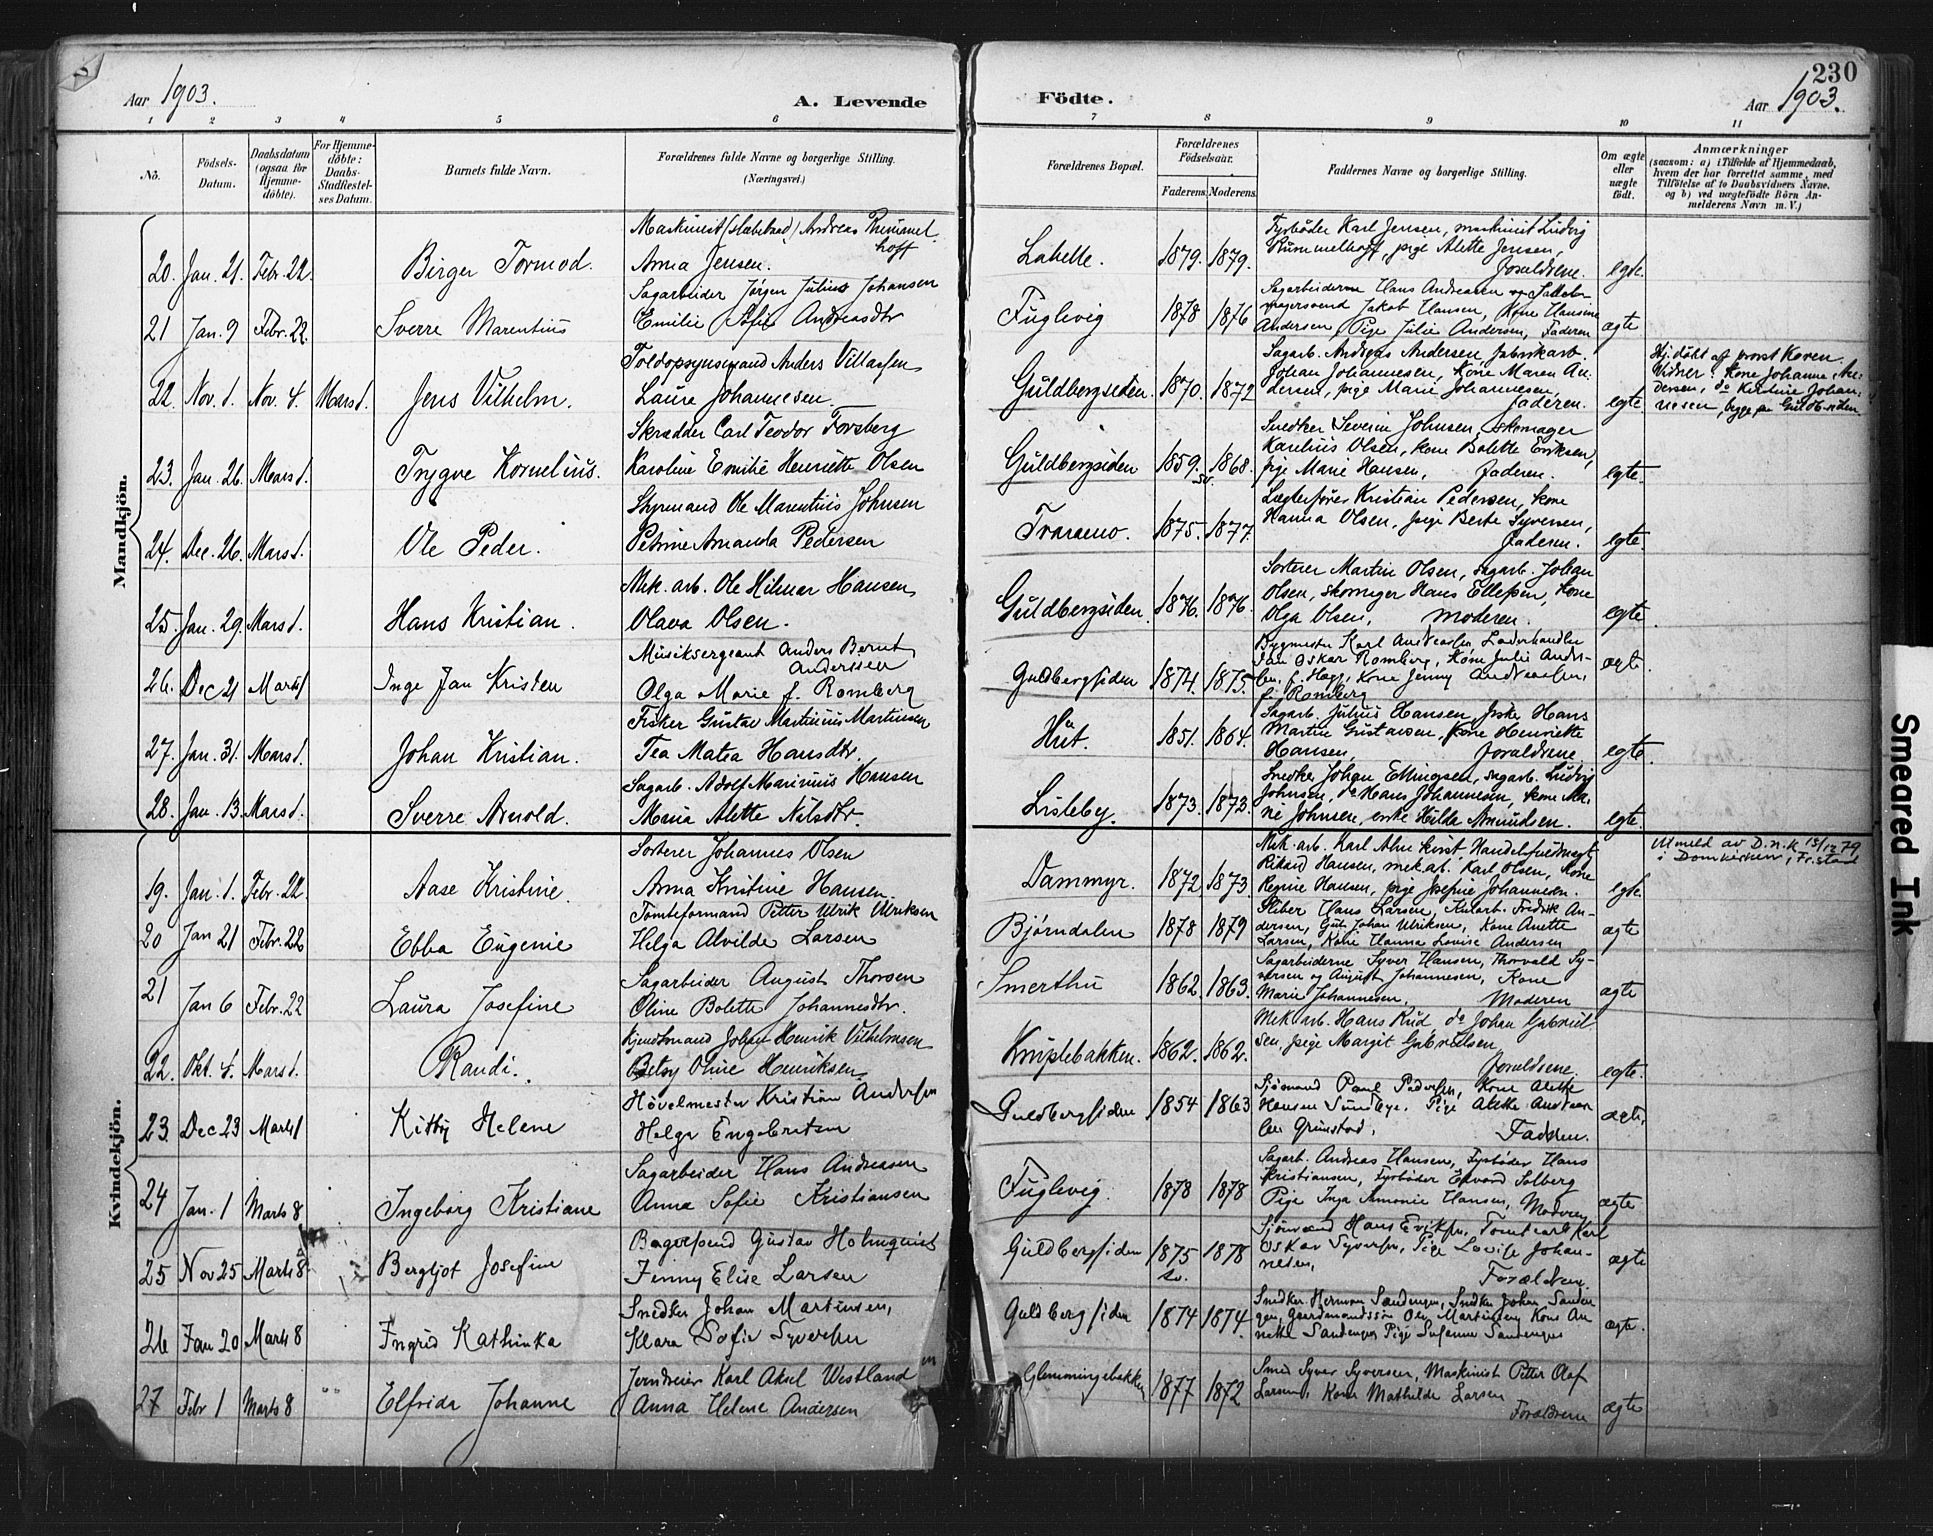 230
Aar 1903.
A. Levende
Födte.
Aar 1903.
1 2 3 4 5 6 7 8 9 10 11
No.
Födsels-Datum.
Daabsdatum (ogsaa for Hjemme-döbte).
For Hjemme-döbte: Daabs-Stadfæstel-ses Datum.
Barnets fulde Navn.
Forældrenes fulde Navne og borgerlige Stilling.
(Næringsvei.)
Forældrenes Bopæl.
Forældrenes Födselsaar.
Faderens. Moderens.
Faddernes Navne og borgerlige Stilling.
Om ægte eller uægte födt.
Anmærkninger
(saasom: a) i Tilfælde af Hjemmedaab, hvem der har forrettet samme, med Tilföielse af to Daabsvidners Navne, og b) ved uægtefödte Börn An-melderens Navn m. V.)
Mandkjön.
20. Jan. 21. Febr. 22. Birger Tormod.
Maskinist (Slæbebaad) Andreas Rummel-
hoff
Anna Jensen.
Labelle. 1879. 1879.
Fyrbøder Karl Jensen, maskinist Ludvig
Rummelhoff, pige Alette Jensen,
Forældrene. egte.
21 Jan. 9 Febr. 22. Sverre Marentius
Sagarbeider Jørgen Julius Johansen
Emilie Sofie Andreasdtr
Fuglevig 1878 1876
Sagarbeiderne Hans Andreasen og
Jakob Hansen, Kone Hansine
Andersen, Pige Julie Andersen, Faderen ægte
22. Nov. 1. Nov. 4. Mars 1. Jens Vilhelm.
Toldopsynsmand Anders Villassen
Laura Johannesen.
Guldbergsiden. 1870. 1872
Sagarb. Andreas Andersen, fabrikarb.
Johan Johannesen, Kone Maren An-
dersen, pige Marie Johannesen,
Faderen. egte
Hj.døbt af provst Koren.
Vidner: Kone Johanne An-
dersen, do Kirstine Johan-
nesen, begge pa Guldb.siden
23. Jan. 26. Mars 1. Trygve Kornelius.
Skrædder Carl Teodor Forsberg
Karoline Emilie Henriette Olsen
Guldbergsiden 1859. sv. 1868.
Snedker Severin Johnsen, skomager
Karelius Olsen, kone Bolette Eriksen,
pige Marie Hansen, Faderen. egte.
24. Dec. 26. Mars 1. Ole Peder.
Styrmand Ole Marentius Johnsen
Petrine Amanda Pedersen
Traraemo. 1875. 1877.
Lægterfører Kristian Pedersen, kone
Hanna Olsen, pige Berte Syversen,
Faderen. egte.
25. Jan. 29. Mars 1. Hans Kristian.
Mek. arb. Ole Hilmar Hansen
Olava Olsen.
Guldbergsiden. 1876. 1876.
Sorterer Martin Olsen, sagarb. Johan
Olsen, skomager Hans Ellefsen, Kone
Olga Olsen, Moderen. egte.
26. Dec 21 Marts 1 Inge Jan Kristen
Musiksergeant Anders Bernt
Anderssen
Olga Marie f. Romberg
Guldbergsiden 1874. 1875.
Bygmester Karl Andreassen, Læderhandler
Jan Oskar Romberg, Kone Julie Ander-
sen, f. Hagg, Kone Jenny Andreassen,
f. Romberg ægte.
27. Jan. 31. Mars 1. Johan Kristian.
Fisker Gustav Martinius Martinsen
Tea Matea Hansdtr.
Hut. 1851. 1864.
Sagarb. Julius Hansen, fisker Hans
Martin Gustavsen, Kone Henriette
Hansen, Forældrene egte.
28. Jan. 13. Mars 1. Sverre Arnold.
Sagarb. Adolf Marinius Hansen
Maria Alette Nilsdtr.
Lisleby. 1873. 1873.
Snedker Johan Ellingsen, sagarb. Ludvig
Johnsen, do Hans Johannesen, kone Ma-
rie Johnsen, enke Hilda Amundsen. egte.
Kvindekjön.
19. Jan. 1. Febr. 22. Aase Kristine.
Sorterer Johannes Olsen
Anna Kristine Hansen.
Dammyr. 1872 1873.
Mek. arb. Karl Almkvist, Handelsfuldmægt.
Rikard Hansen, mek.arb. Karl Olsen, Kone
Regine Hansen, pige Josefine Johannesen. egte.
Utmeld av D.n.k 13/12 79
i Domkirken, Fr.stad
20 Jan 21 Febr. 22 Ebba Eugenie
Tomteformand Petter Ulrik Ulriksen
Helga Alvilde Larsen
Bjørndalen 1878 1879
Sliber Hans Larsen, Fredrik An-
dersen, Gut Johan Ulriksen, Kone Anette
Larsen, Kone Hanna Lovise Andersen ægte
21 Jan 6 Febr. 22 Laura Josefine
Sagarbeider August Thorsen
Oline Bolette Johannesdtr.
Smerthu 1862. 1863.
Sagarbeiderne Syver Hansen, Thorvald Sy-
versen og August Johannesen, Kone
Marie Johannesen. Moderen ægte
22. Okt. 4. Mars 1. Randi.
Kjendtmand Johan Henrik Vilhelmsen
Betsy Oline Henriksen
Kniplebakken. 1862. 1862.
Mek. arb. Hans Rud, do Johan Gabriel-
sen, pige Margit Gabrielsen,
Forældrene. egte.
23. Dec 23 Marts 1 Kitty Helene
Høvelmester Kristian Andersen
Helga Engebretsen
Guldbergsiden 1854 1863
Sjømand Paul Pedersen, Kone Alette
Hansen Sundbye. Pige Alette Andreas-
sen Grimstad. Faderen. ægte.
24 Jan. 1 Marts 8 Ingeborg Kristiane
Sagarbeider Hans Andreasen
Anna Sofie Kristiansen
Fuglevig. 1878 1878
Sagarb. Andreas Hansen, Fyrbøder Hans
Kristiansen, Fyrbøder Edvard Solberg
Pige Inga Amonie Hansen, Moderen ægte
25 Nov 25 Marts 8 Bergljot Josefine
Bagersvend Gustav Holmquist
Jenny Elise Larsen
Guldbergsiden 1875 sv. 1878
Sjømand Hans Eriksen, Tomtearb Karl
Oskar Syversen, Pige Lovise Johan-
nesen, Forældrene ægte
26 Jan 20 Marts 8 Ingrid Kathinka
Snedker Johan Martinsen,
Klara Sofie Syversen
Guldbergsiden 1874 1874.
Snedker Herman Sandengen, Snedker Johan Sanden-
gen, Gaardmandssøn Ole Martinsen, Kone An-
nette Sandengen, Pige Susanne Sandengen ægte.
27 Febr 1 Marts 8 " " Elfrida Johanne
Jerndreier Karl Aksel Westland
Anna Helene Andersen
Glemmingebakken 1877 1872
Smed Syver Syversen, Maskinist Petter Olaf
Larsen, Kone Mathilde Larsen
Forældrene ægte
Smeared Ink